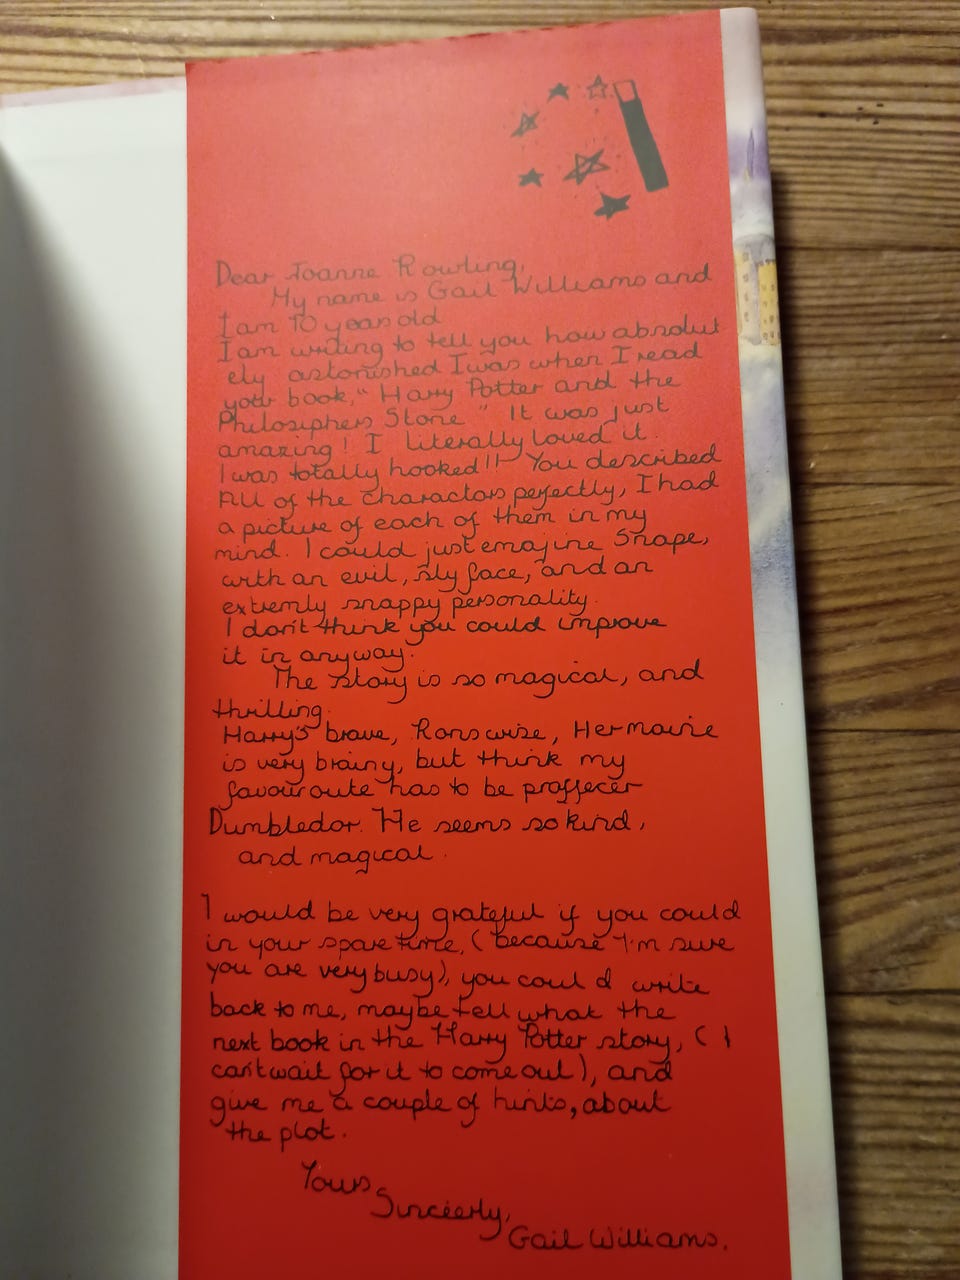 Dear Joanne Rowling,
My name is Gail Williams and
I am 10 years old
I am writing to tell you how absolut
ely astonished I was when I read
your book, "Harry Potter and the
Philosiphers Stone" It was just
amazing! I literally loved it.
I was totally hooked!! You described
All of the charactors perfectly, I had
a picture of each of them in my
mind. I could just emajine Snape,
with an evil, sly face, and an
extremly snappy personality.
I don't think you could improve
it in anyway.
The story is so magical, and
thrilling.
Harry's brave, Rons wise, Hermoine
is very brainy, but think my
favouroute has to be proffecer
Dumbledor. He seems so kind,
and magical.
I would be very grateful if you could
in your spare time, (because I'm sure
you are very busy), you could write
back to me, maybe tell what the
next book in the Harry Potter story, (I
can't wait for it to come out), and
give me a couple of hints, about
the plot.
Yours
Sinceerly,
Gail Williams.